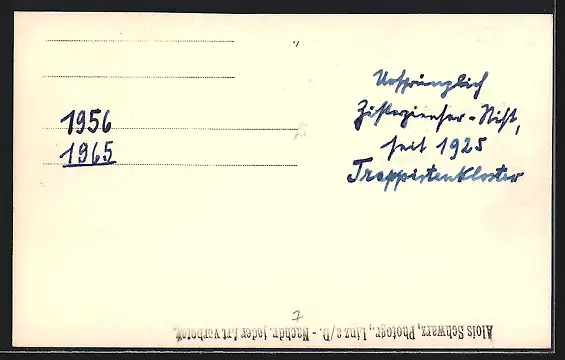 1956
1965
Ursprünglich
Zisterzienser-Stift,
seit 1925
Trappistenkloster
7
Alois Schwarz, Photogr., Linz a/D. - Nachdr. jeder Art verboten